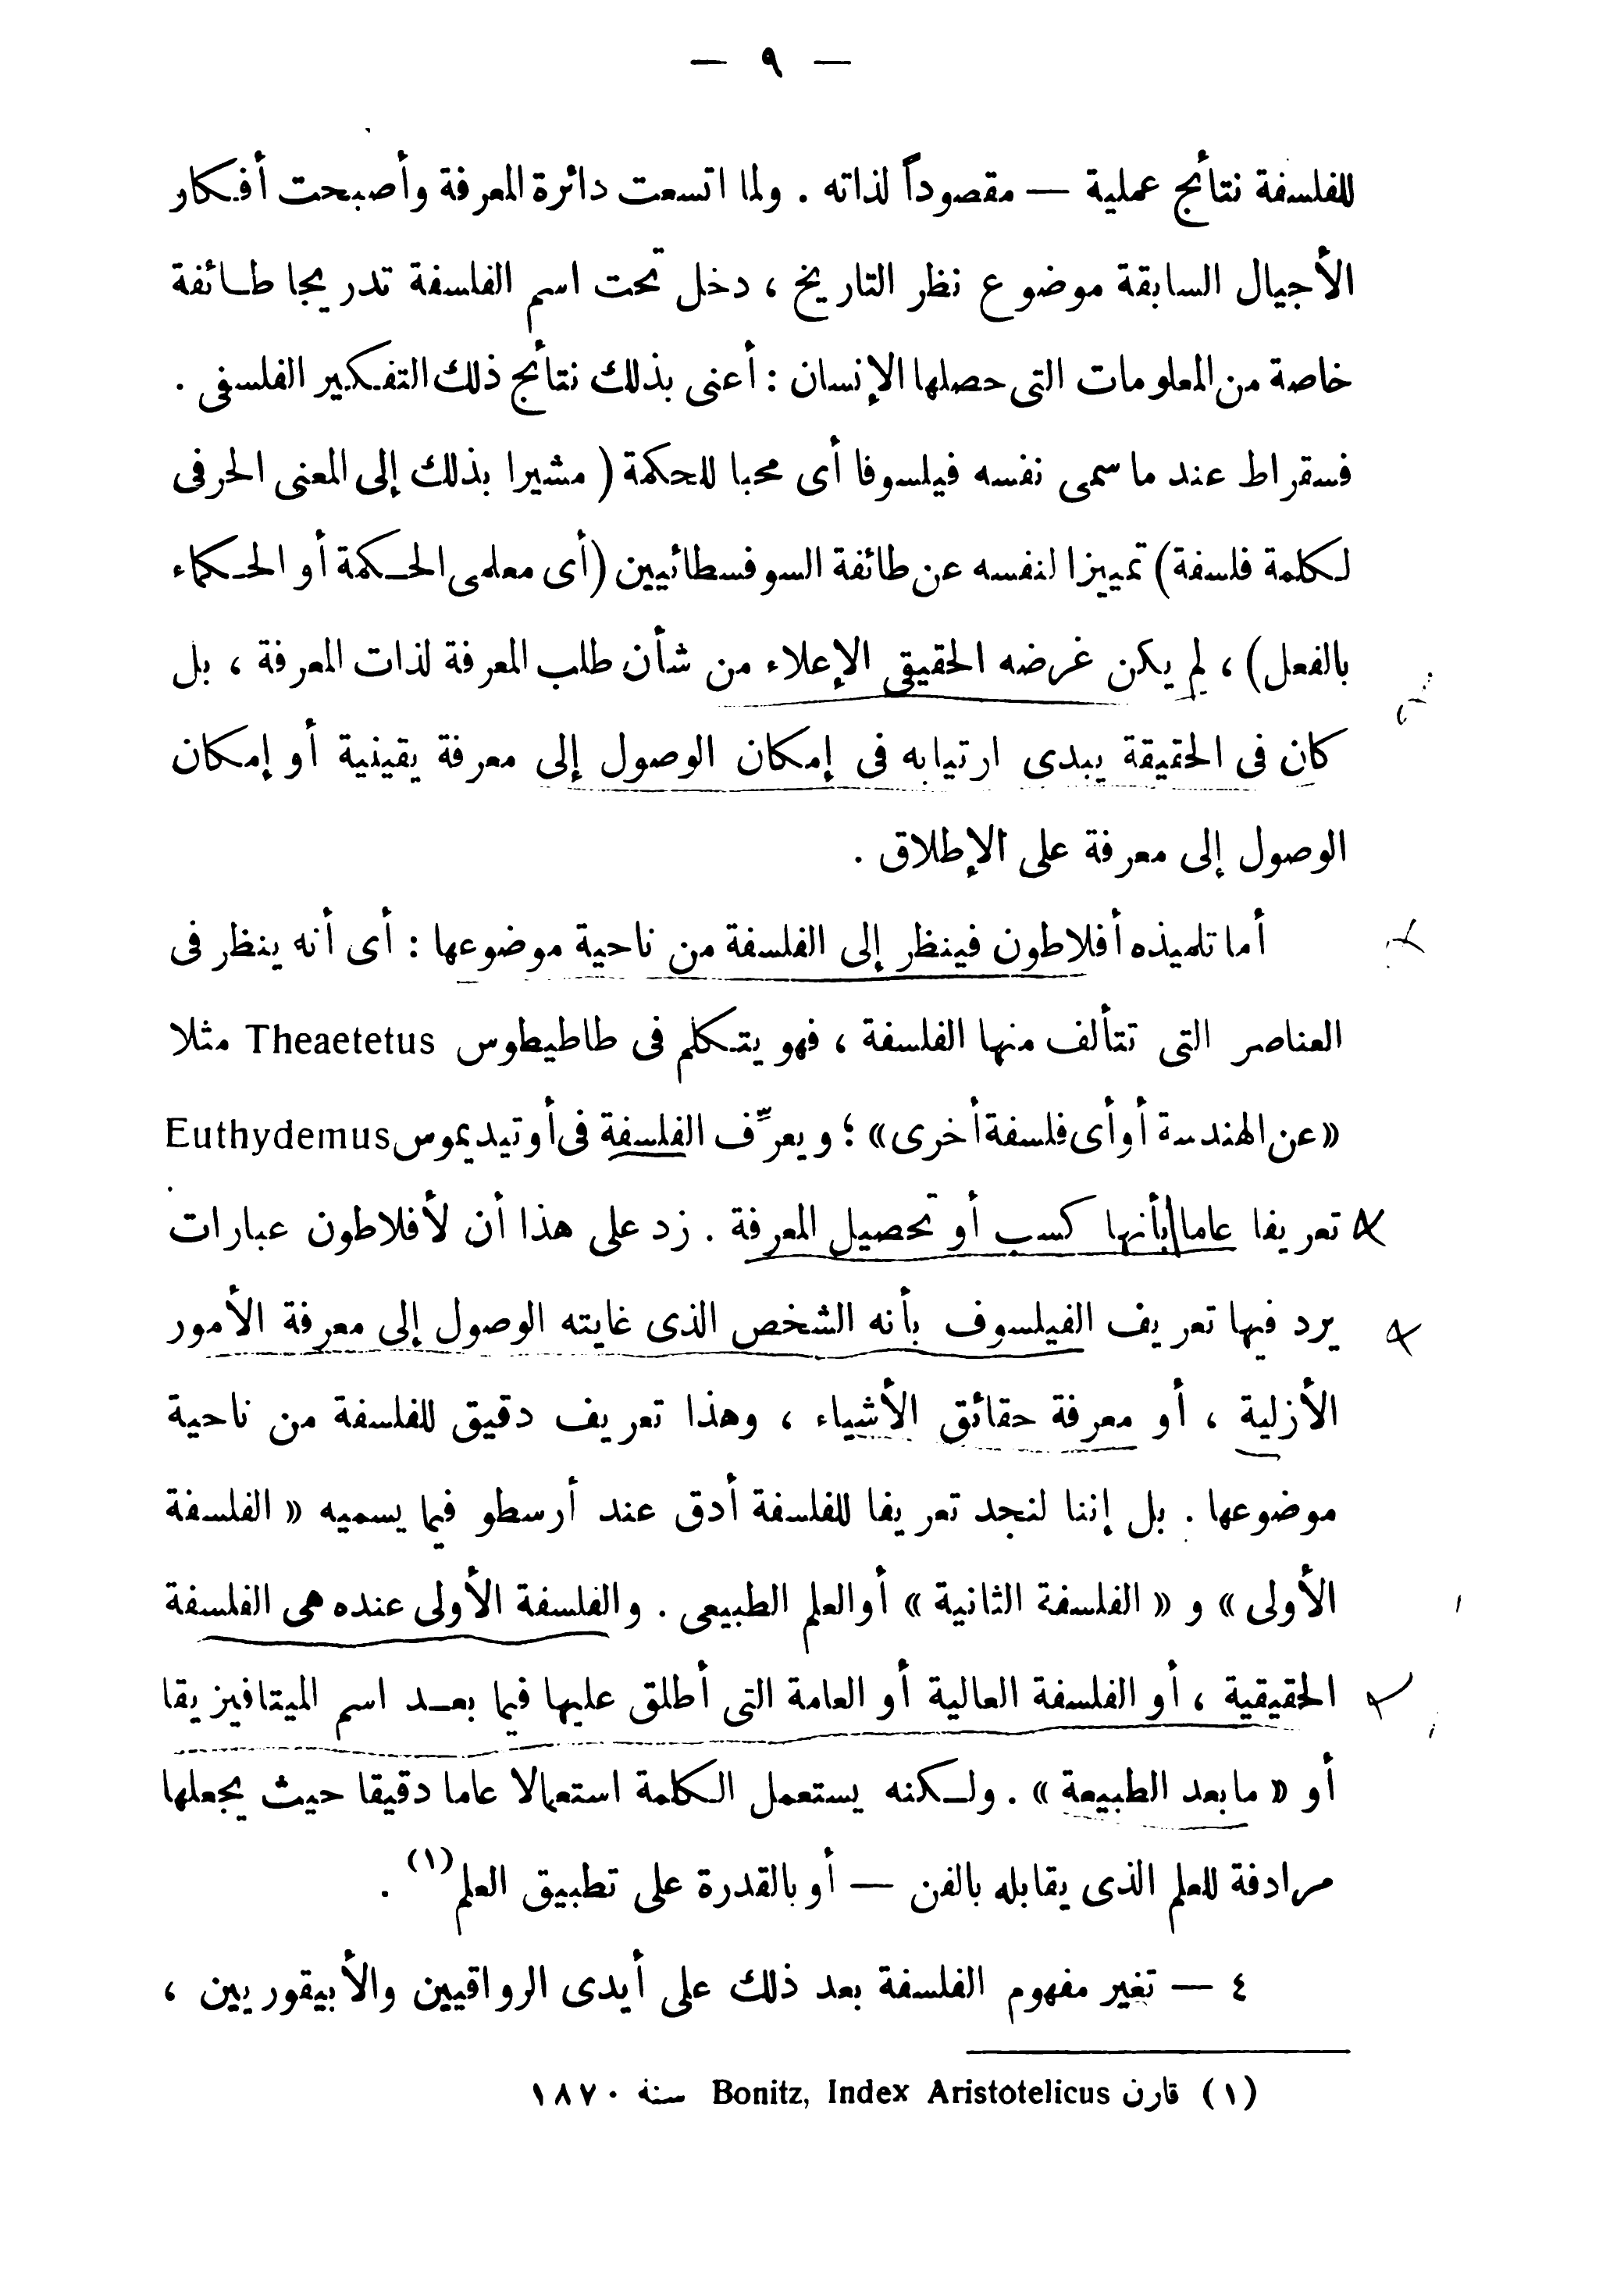 — ٩ —
للفلسفة نتائج عملية — مقصوداً لذاته . ولما اتسعت دائرة المعرفة وأصبحت أفكار
الأجيال السابقة موضوع نظر التاريخ ، دخل تحت اسم الفلسفة تدريجا طائفة
خاصة من المعلومات التى حصلها الإنسان : أعنى بذلك نتائج ذلك التفكير الفلسفى .
فسقراط عند ما سمى نفسه فيلسوفا أى محبا للحكمة ( مشيرا بذلك إلى المعنى الحرفى
لكلمة فلسفة) تمييزا لنفسه عن طائفة السوفسطائيين (أى معلمى الحكمة أو الحكماء
بالفعل) ، لم يكن غرضه الحقيقى الإعلاء من شأن طلب المعرفة لذات المعرفة ، بل
كان فى الحقيقة يبدى ارتيابه فى إمكان الوصول إلى معرفة يقينية أو إمكان
الوصول إلى معرفة على الإطلاق .
أما تلميذه أفلاطون فينظر إلى الفلسفة من ناحية موضوعها : أى أنه ينظر فى
العناصر التى تتألف منها الفلسفة ، فهو يتكلم فى طاطيطوس Theaetetus مثلا
«عن الهندسة أو أى فلسفة أخرى» ؛ ويعرِّف الفلسفة فى أوتيديموس Euthydemus
تعريفا عاما بأنها كسب أو تحصيل المعرفة . زد على هذا أن لأفلاطون عبارات
يرد فيها تعريف الفيلسوف بأنه الشخص الذى غايته الوصول إلى معرفة الأمور
الأزلية ، أو معرفة حقائق الأشياء ، وهذا تعريف دقيق للفلسفة من ناحية
موضوعها . بل إننا لنجد تعريفا للفلسفة أدق عند أرسطو فيما يسميه « الفلسفة
الأولى » و « الفلسفة الثانية » أو العلم الطبيعى . والفلسفة الأولى عنده هى الفلسفة
الحقيقية ، أو الفلسفة العالية أو العامة التى أطلق عليها فيما بعد اسم الميتافيزيقا
أو « ما بعد الطبيعة » . ولكنه يستعمل الكلمة استعمالا عاما دقيقا حيث يجعلها
مرادفة للعلم الذى يقابله بالفن — أو بالقدرة على تطبيق العلم (١) .
٤ — تغير مفهوم الفلسفة بعد ذلك على أيدى الرواقيين والأبيقوريين ،
(١) قارن Bonitz, Index Aristotelicus سنة ١٨٧٠